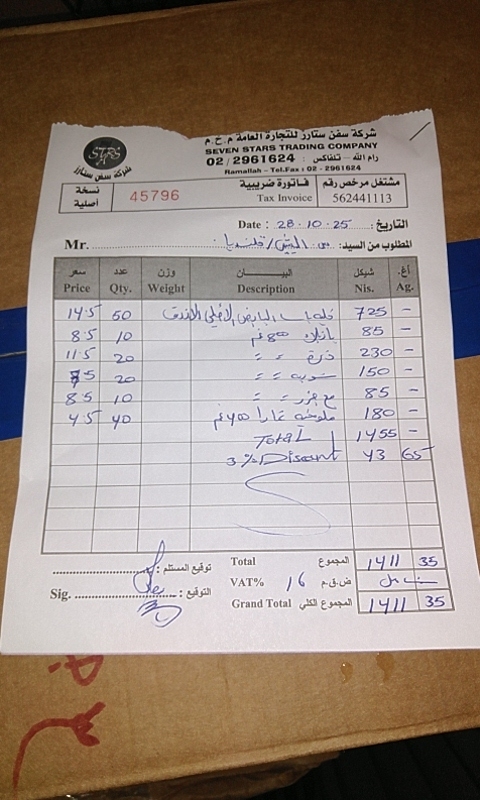 شركة سفن ستارز للتجارة العامة م.خ.م
SEVEN STARS TRADING COMPANY
02 / 2961624 رام الله - تلفاكس :
Ramallah - Tel.Fax : 02 - 2961624
STARS
شركة سفن ستارز
نسخة أصلية
45796
فاتورة ضريبية
Tax Invoice
مشتغل مرخص رقم
562441113
التاريخ: Date : 28.10.25
المطلوب من السيد: Mr.
سعر Price عدد Qty. وزن Weight البيـــان Description شيكل Nis. أغ. Ag.
14.5 50 725 -
8.5 10 85 -
11.5 20 ذرة = = 230 -
7.5 20 = = 150 -
8.5 10 = = 85 -
4.5 40 180 -
Total 1455 -
3% Discount 43 65
Total المجموع 1411 35
VAT% 16 ض.ق.م
Grand Total المجموع الكلي 1411 35
توقيع المستلم :
Sig. التوقيع :